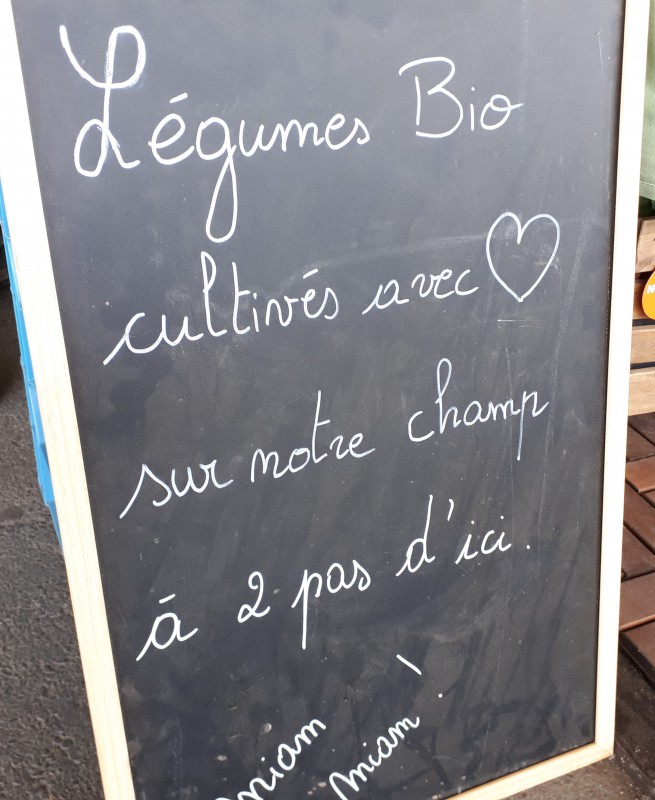 Légumes Bio
cultivés avec ♡
sur notre champ
à 2 pas d'ici.
miam
miam !